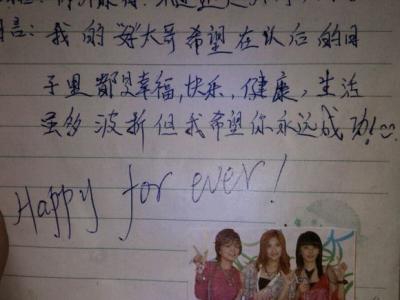 言:我的"好"大哥希望在以后的日
子里都是幸福,快乐,健康,生活
虽多波折但我希望你永远成功!
Happy for ever!